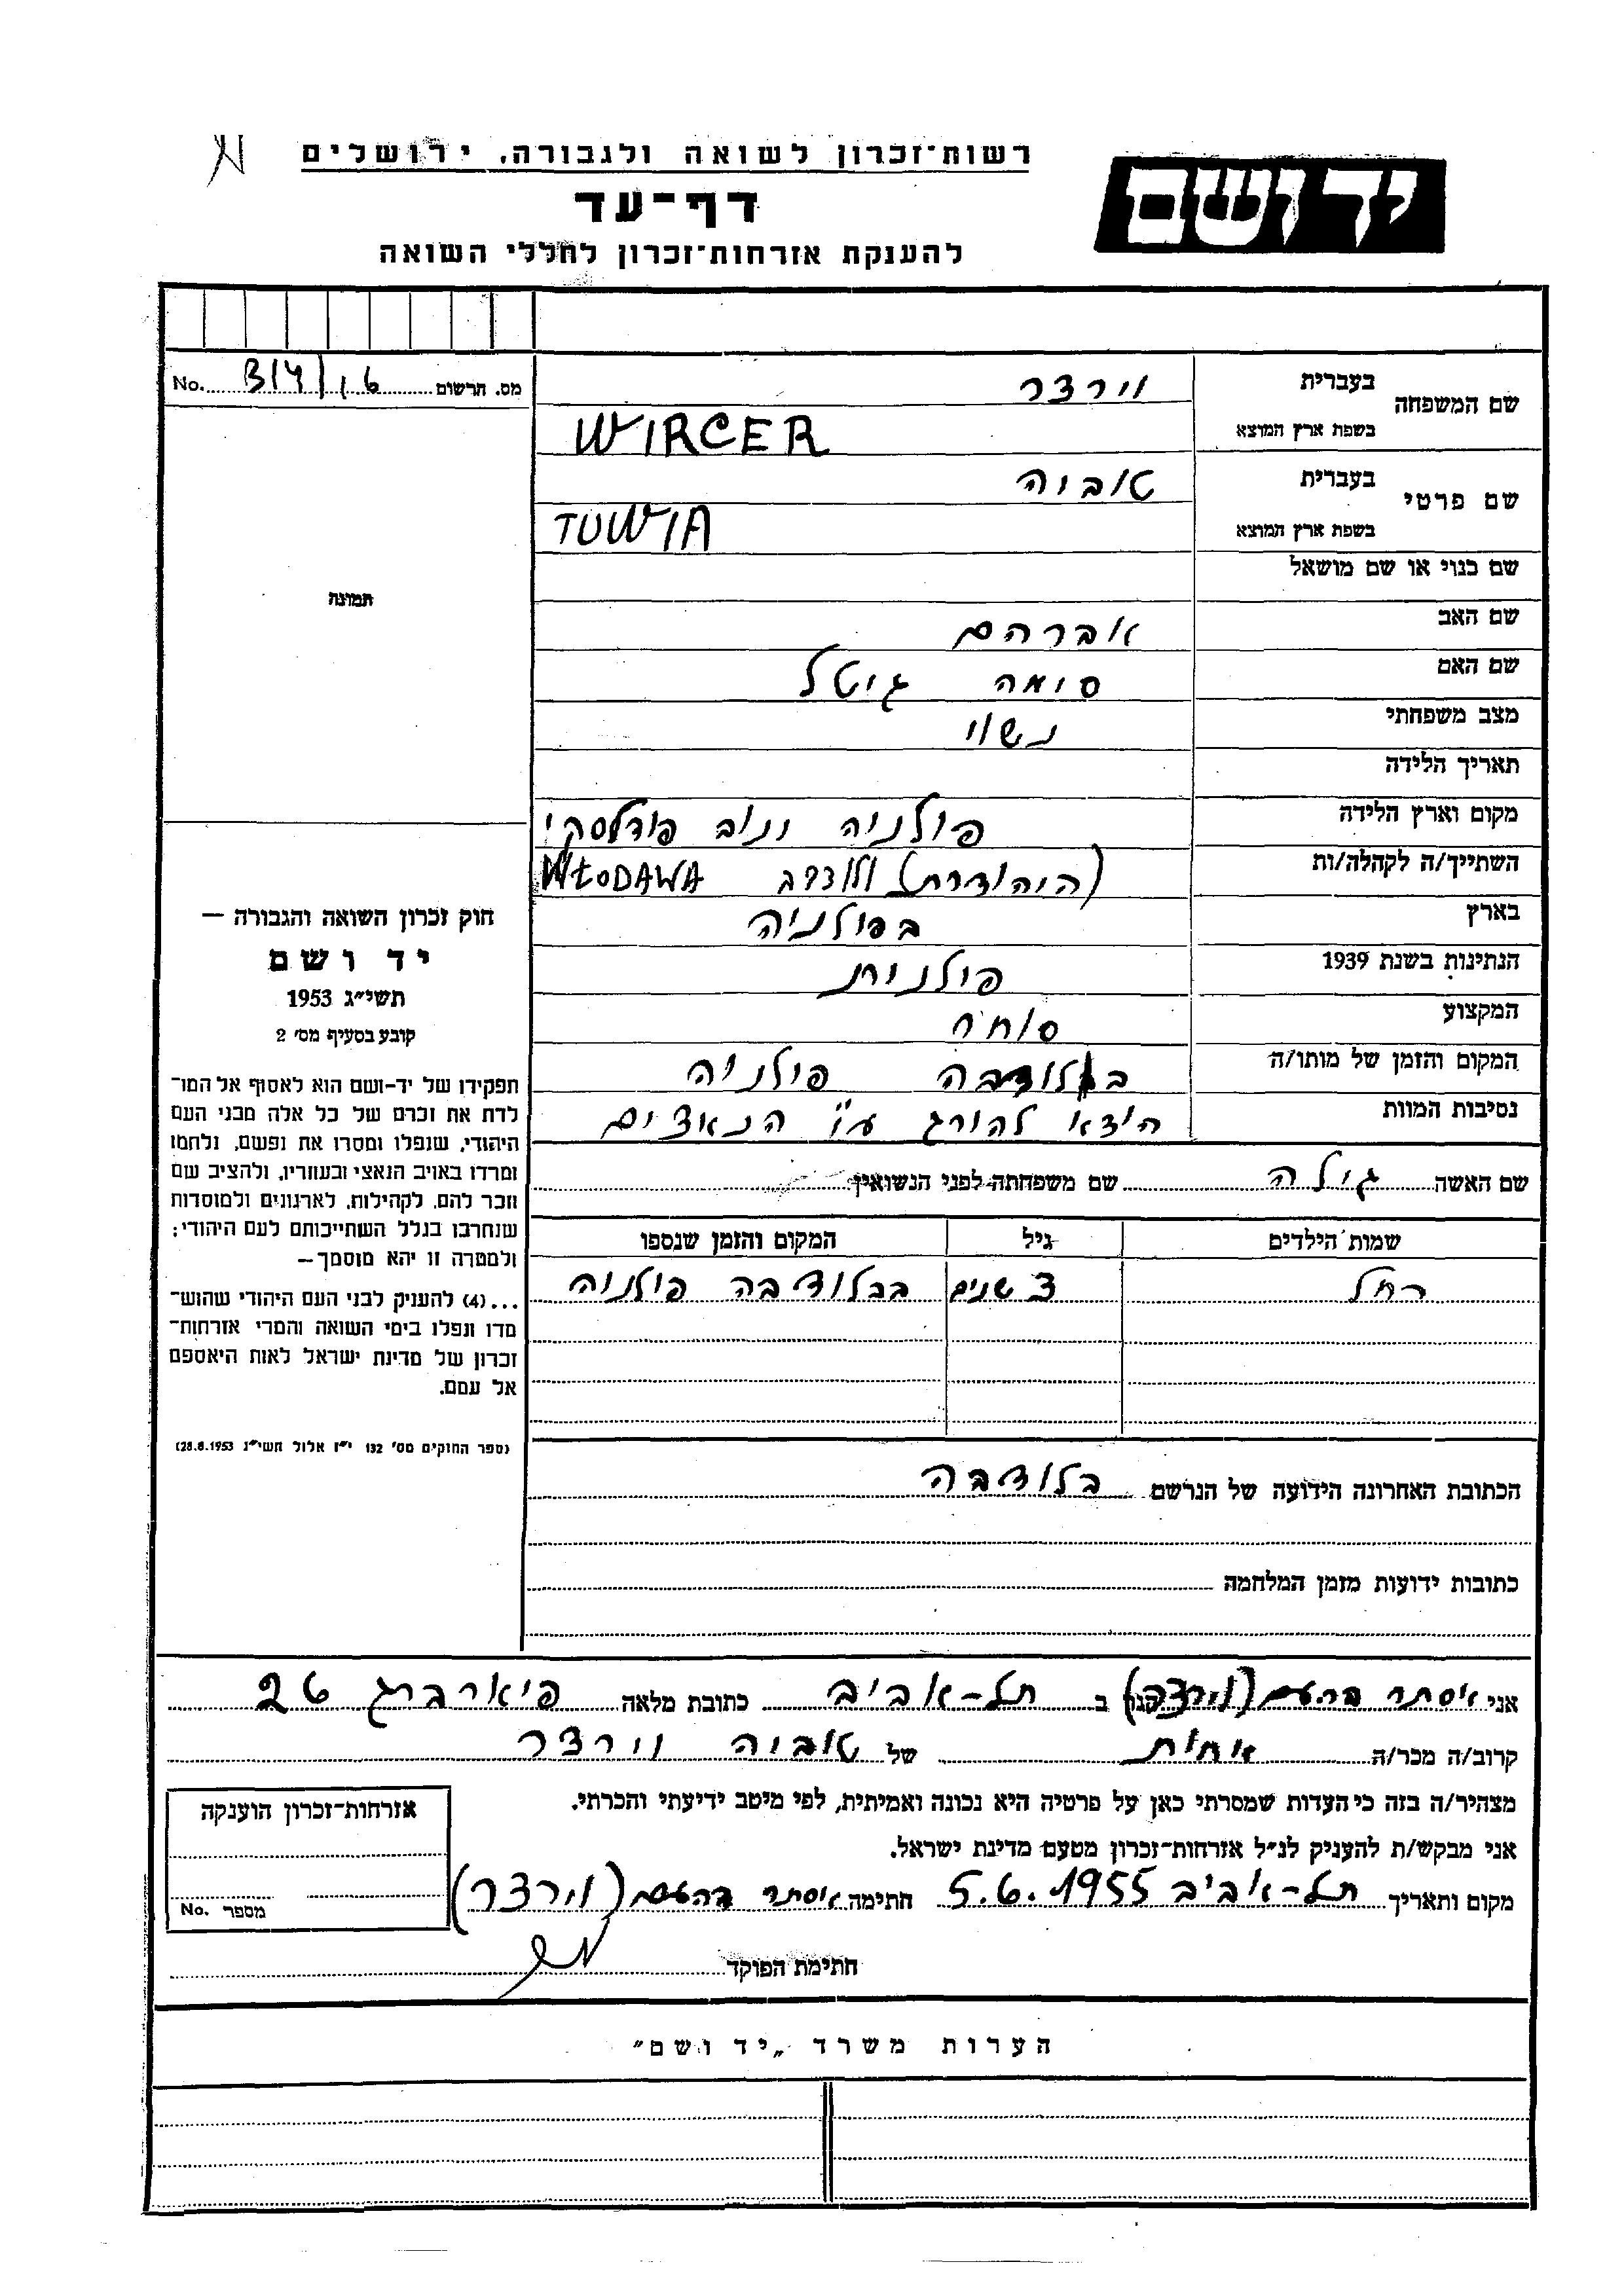 רשות־זכרון לשואה ולגבורה, ירושלים
יד ושם
דף־עד
להענקת אזרחות־זכרון לחללי השואה
מס. הרשום No.
שם המשפחה בעברית וירצר
בשפת ארץ המוצא WIRCER
שם פרטי בעברית טוביה
בשפת ארץ המוצא TUWIA
שם כנוי או שם מושאל
שם האב אברהם
שם האם סימה גיטל
מצב משפחתי נשוי
תאריך הלידה
מקום וארץ הלידה פולניה
השתייך/ה לקהלה/ות WŁODAWA
בארץ בפולניה
הנתינות בשנת 1939 פולנית
המקצוע סוחר
המקום והזמן של מותו/ה פולניה
נסיבות המוות הוצא להורג ע"י הנאצים
שם האשה גילה שם משפחתה לפני הנשואין
שמות הילדים גיל המקום והזמן שנספו
רחל 3 שנים פולניה
הכתובת האחרונה הידועה של הנרשם
כתובות ידועות מזמן המלחמה
תמונה
חוק זכרון השואה והגבורה —
יד ושם
תשי״ג 1953
קובע בסעיף מס׳ 2
תפקידו של יד־ושם הוא לאסוף אל המו־
לדת את זכרם של כל אלה מבני העם
היהודי, שנפלו ומסרו את נפשם, נלחמו
ומרדו באויב הנאצי ובעוזריו, ולהציב שם
וזכר להם, לקהילות, לארגונים ולמוסדות
שנחרבו בגלל השתייכותם לעם היהודי;
ולמטרה זו יהא מוסמך—
...(4) להענִיק לבני העם היהודי שהוש־
מדו ונפלו בימי השואה והמרי אזרחות־
זכרון של מדינת ישראל לאות היאספם
אל עמם.
(ספר החוקים מס׳ 132 י״ז אלול תשי״ג 28.8.1953)
אני אסתר (וירצר) הגר ב תל-אביב כתובת מלאה
קרוב/ה מכר/ה אחות של טוביה וירצר
מצהיר/ה בזה כי העדות שמסרתי כאן על פרטיה היא נכונה ואמיתית, לפי מיטב ידיעתי והכרתי.
אני מבקש/ת להעניק לנ״ל אזרחות־זכרון מטעם מדינת ישראל.
מקום ותאריך תל-אביב 5.6.1955 חתימה אסתר (וירצר)
חתימת הפוקד
אזרחות־זכרון הוענקה
מספר No.
הערות משרד „יד ושם״